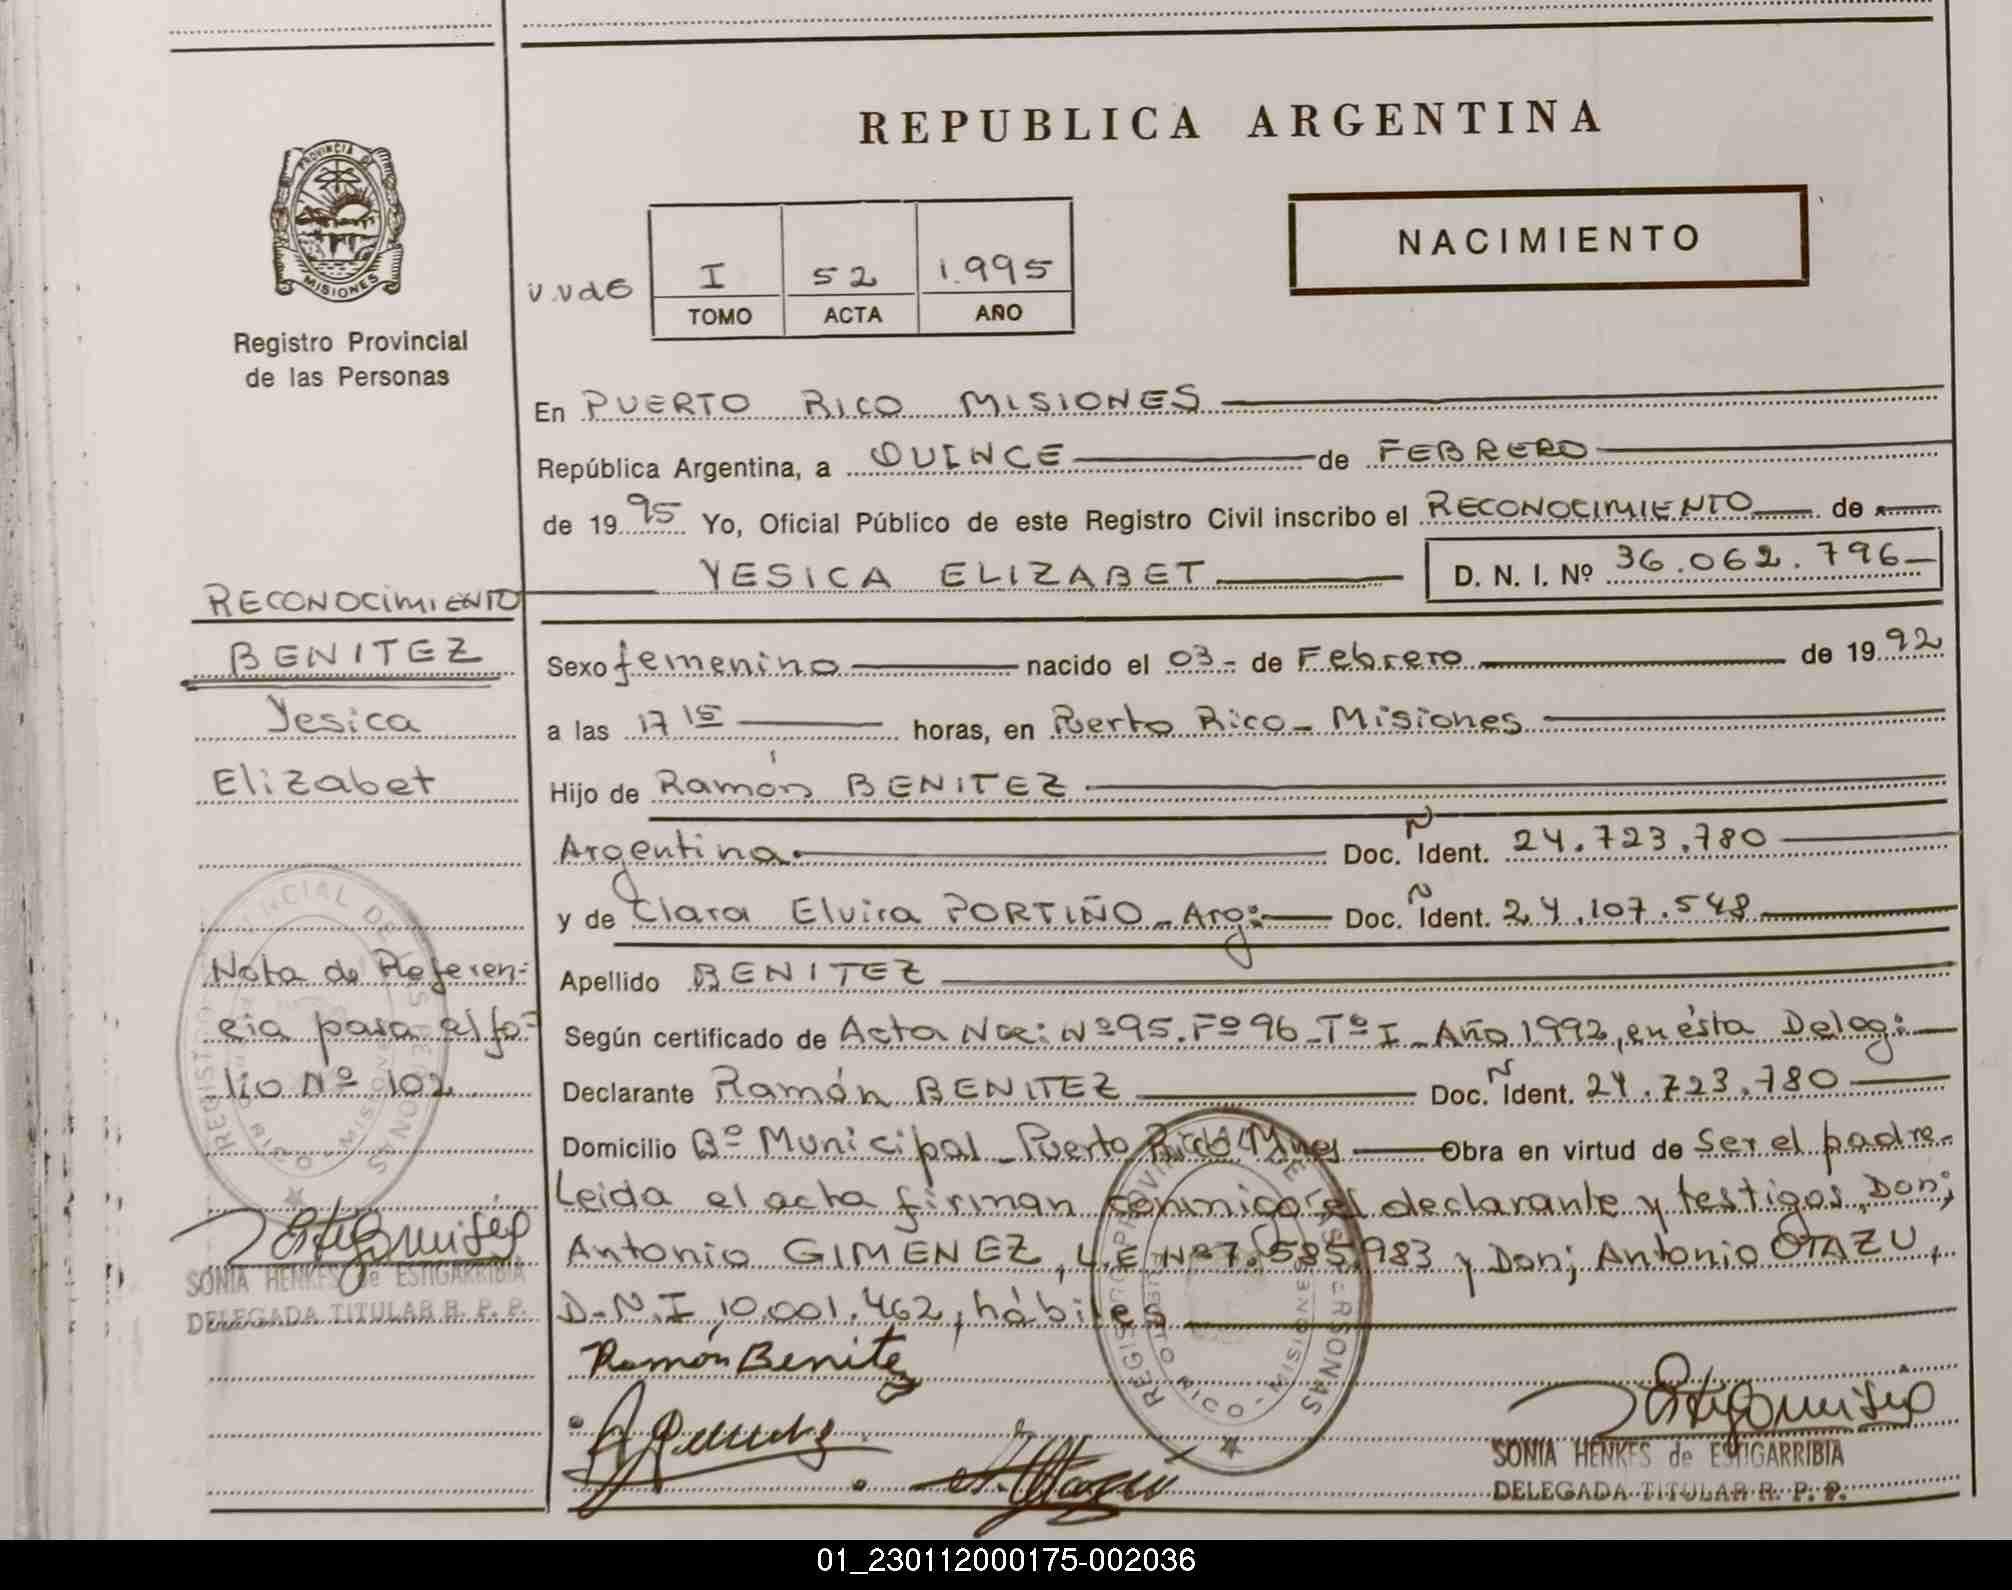 REPUBLICA ARGENTINA
PROVINCIA DE MISIONES
Registro Provincial
de las Personas
I 52 1.995
TOMO ACTA AÑO
NACIMIENTO
En PUERTO RICO MISIONES
República Argentina, a QUINCE de FEBRERO
de 1995 Yo, Oficial Público de este Registro Civil inscribo el RECONOCIMIENTO de
YESICA ELIZABET D. N. I. Nº 36.062.796
RECONOCIMIENTO
BENITEZ
Yesica
Elizabet
Sexo femenino nacido el 03- de Febrero de 1992
a las 17 15 horas, en Puerto Rico - Misiones
Hijo de Ramón BENITEZ
Argentina. Doc. N Ident. 24.723.780
y de Clara Elvira PORTIÑO - Arg: Doc. N Ident. 24.107.548
Apellido BENITEZ
Según certificado de Acta Nac: Nº 95. Fº 96 - Tº I - Año 1992, en ésta Deleg:
Declarante Ramón BENITEZ Doc. N Ident. 24.723.780
Domicilio Bº Municipal - Puerto Rico Mnes Obra en virtud de ser el padre-
Leida el acta firman conmigo el declarante y testigos, Don;
Antonio GIMENEZ, L.E Nº 7.585.983 y Don; Antonio OTAZU,
D.N.I 10.001.462, hábiles
Nota de Referen-
cia para el fo-
lio Nº 102
SONIA HENKES de ESTIGARRIBIA
DELEGADA TITULAR R. P. P.
Ramón Benitez
SONIA HENKES de ESTIGARRIBIA
DELEGADA TITULAR R. P. P.
01_230112000175-002036